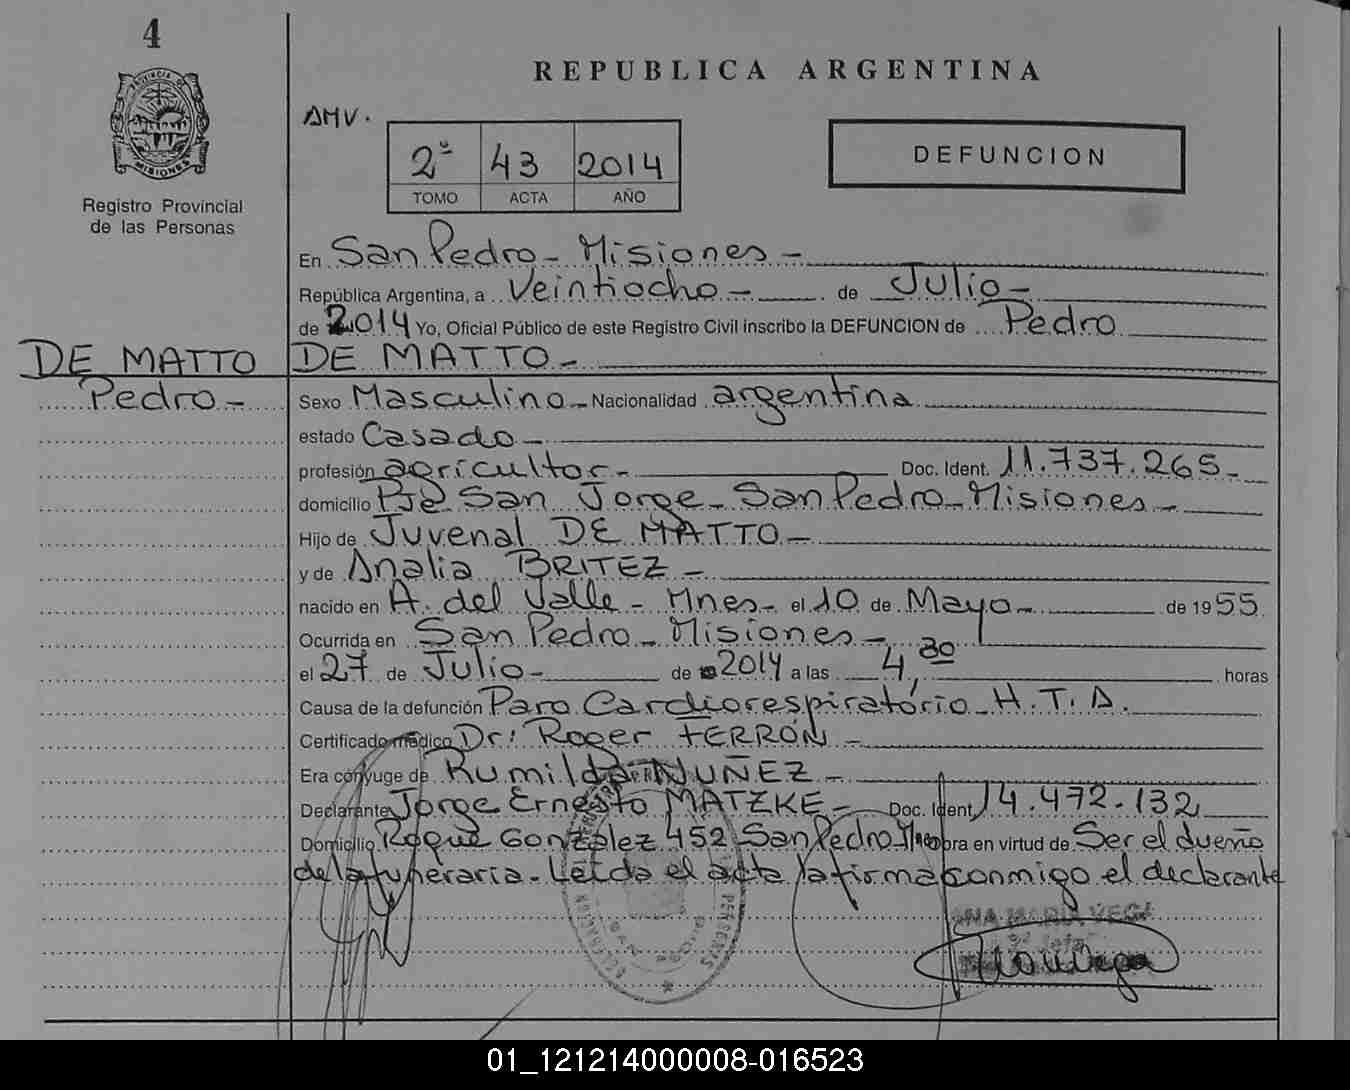 4
PROVINCIA DE
MISIONES
Registro Provincial
de las Personas
REPUBLICA ARGENTINA
AMV.
2º 43 2014
TOMO ACTA AÑO
DEFUNCION
En San Pedro - Misiones -
República Argentina, a Veintiocho - de Julio -
de 2014 Yo, Oficial Público de este Registro Civil inscribo la DEFUNCION de Pedro
DE MATTO DE MATTO -
Pedro - Sexo Masculino - Nacionalidad argentina
estado Casado -
profesión agricultor - Doc. Ident. 11.737.265 -
domicilio Pje San Jorge - San Pedro - Misiones -
Hijo de Juvenal DE MATTO -
y de Analia BRITEZ -
nacido en A. del Valle - Mnes - el 10 de Mayo - de 1955
Ocurrida en San Pedro - Misiones -
el 27 de Julio - de 2014 a las 4,30 horas
Causa de la defunción Paro Cardiorespiratório - H.T.A.
Certificado médico Dr: Roger FERRÓN -
Era cónyuge de Rumilda NUÑEZ -
Declarante Jorge Ernesto MATZKE - Doc. Ident. 14.472.132
Domicilio Roque González 452 San Pedro Mnes obra en virtud de Ser el dueño
de la funeraria - Leída el acta la firma conmigo el declarante
ANA MARIA VEGA
01_121214000008-016523